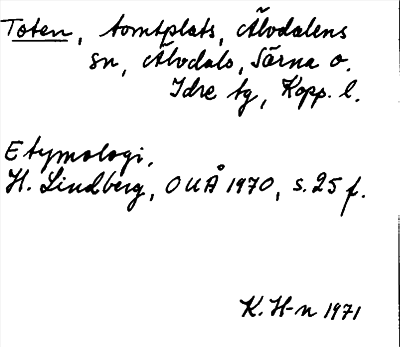 Toten, tomtplats, Älvdalens
sn, Älvdals, Särna o.
Idre tg, Kopp. l.
Etymologi.
H. Lindberg, OUÅ 1970, s. 25 f.
K. H-n 1971